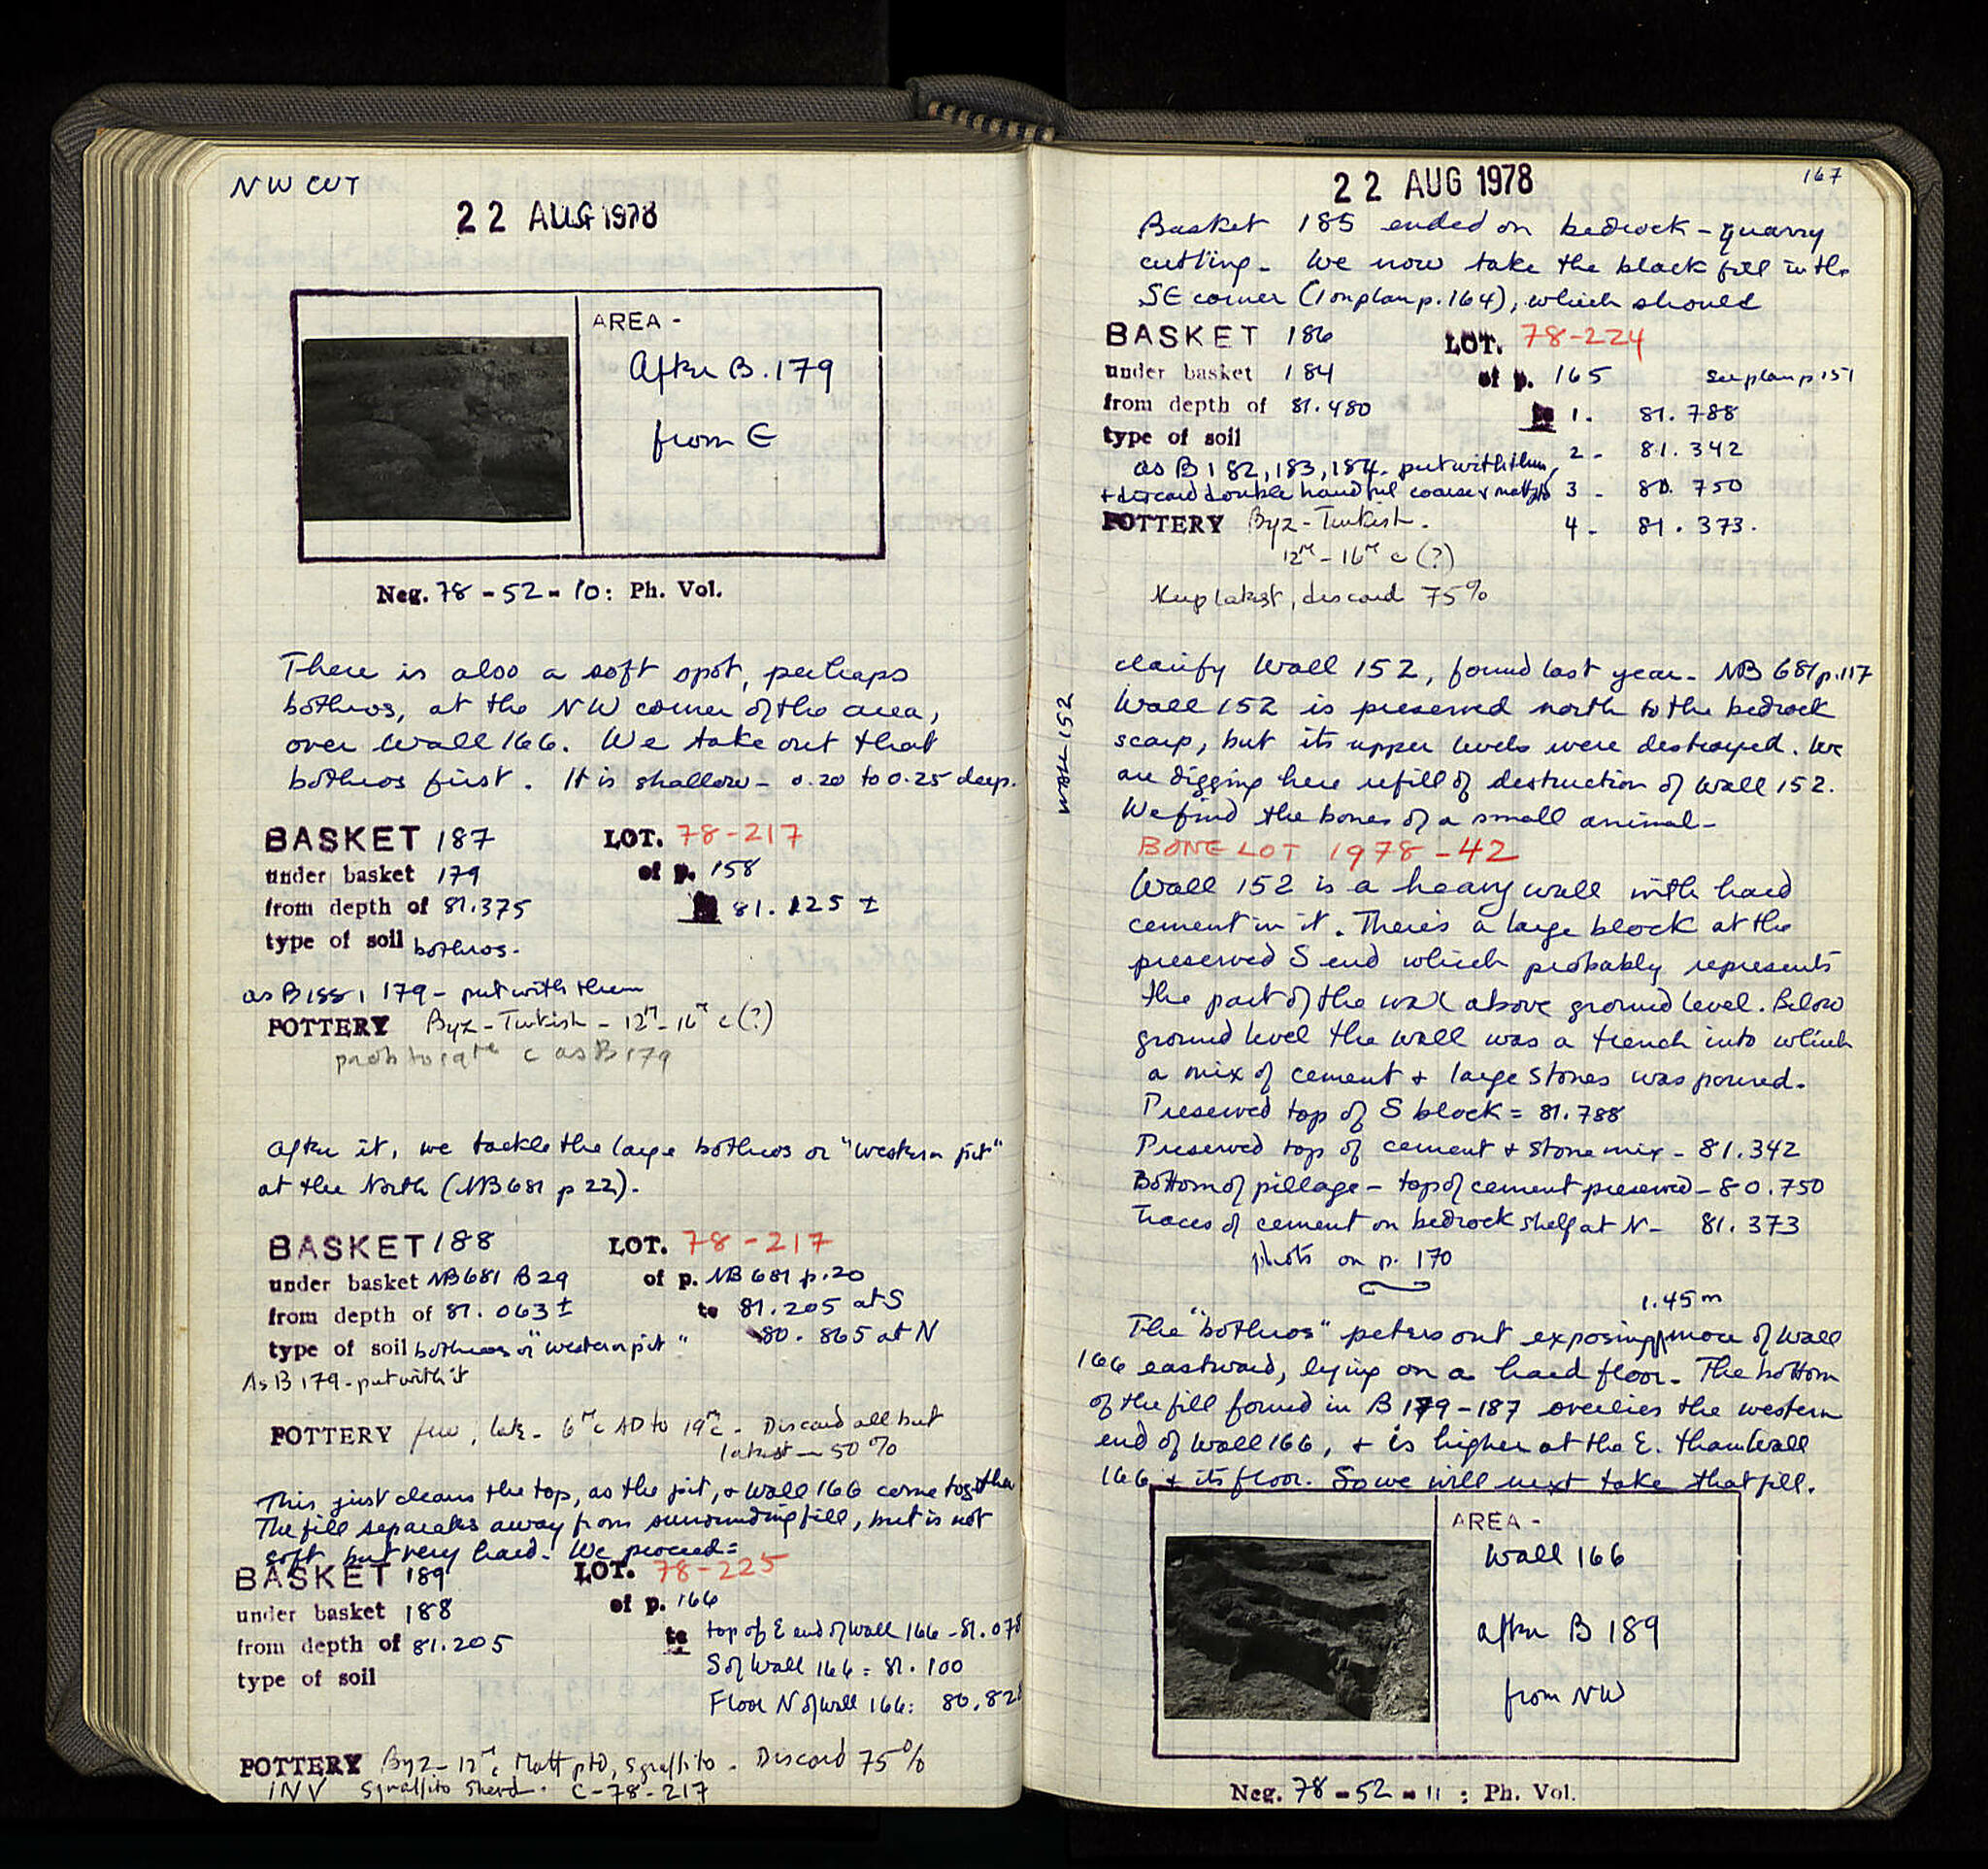 NW CUT
22 AUG 1978
AREA -
After B. 179
from E
Neg. 78 - 52 - 10 : Ph. Vol.
There is also a soft spot, perhaps
bothros, at the NW corner of the area,
over Wall 166. We take out that
bothros first. It is shallow - 0.20 to 0.25 deep.
BASKET 187 LOT. 78-217
under basket 179 of p. 158
from depth of 81.375 81.125 ±
type of soil bothros.
179 - put with them
POTTERY Byz - Turkish - 12th - 16th c (?)
c as B 179
After it, we tackle the large bothros or "western pit"
at the North (NB 681 p 22).
BASKET 188 LOT. 78-217
under basket NB 681 B 29 of p. NB 681 p. 20
from depth of 81.063 ± to 81.205 at S
type of soil bothros or "western pit" 80.865 at N
As B 179 - put with it
POTTERY few, late - 6th c AD to 19th c. Discard all but
latest - 50%
This just cleans the top, as the pit, & Wall 166 come together
The fill separates away from surrounding fill, but is not
soft but very hard. We proceed =
BASKET 189 LOT. 78-225
under basket 188 of p. 166
from depth of 81.205 to top of E end of Wall 166 - 81.078
type of soil S of Wall 166 = 81.100
Floor N of Wall 166: 80.828
POTTERY Byz - 12th c Matt ptd, Sgraffito - Discard 75%
INV Sgraffito Sherd. C-78-217
22 AUG 1978
167
Basket 185 ended on bedrock - quarry
cutting. We now take the black fill in the
SE corner (1 on plan p. 164), which should
BASKET 186 LOT. 78-224
under basket 184 of p. 165 See plan p 151
from depth of 81.480 to 1. 81.788
type of soil 2 - 81.342
as B 182, 183, 184. put with them,
+ discard double handful coarse & 3 - 80.750
POTTERY Byz - Turkish. 4 - 81.373.
12th - 16th c (?)
Keep latest, discard 75%
Wall 152
clarify Wall 152, found last year - NB 681 p. 117
Wall 152 is preserved north to the bedrock
scarp, but its upper levels were destroyed. We
are digging here refill of destruction of Wall 152.
We find the bones of a small animal -
BONE LOT 1978 - 42
Wall 152 is a heavy wall with hard
cement in it. There's a large block at the
preserved S end which probably represents
the part of the wall above ground level. Below
ground level the wall was a trench into which
a mix of cement + large stones was poured.
Preserved top of S block = 81.788
Preserved top of cement + stone mix - 81.342
Bottom of pillage - top of cement preserved - 80.750
Traces of cement on bedrock shelf at N - 81.373
photo on p. 170
1.45 m
The "bothros" peters out exposing more of Wall
166 eastward, lying on a hard floor. The bottom
of the fill found in B 179 - 187 overlies the western
end of Wall 166, + is higher at the E. than Wall
166 + its floor. So we will next take that fill.
AREA -
Wall 166
after B 189
from NW
Neg. 78 - 52 - 11 : Ph. Vol.